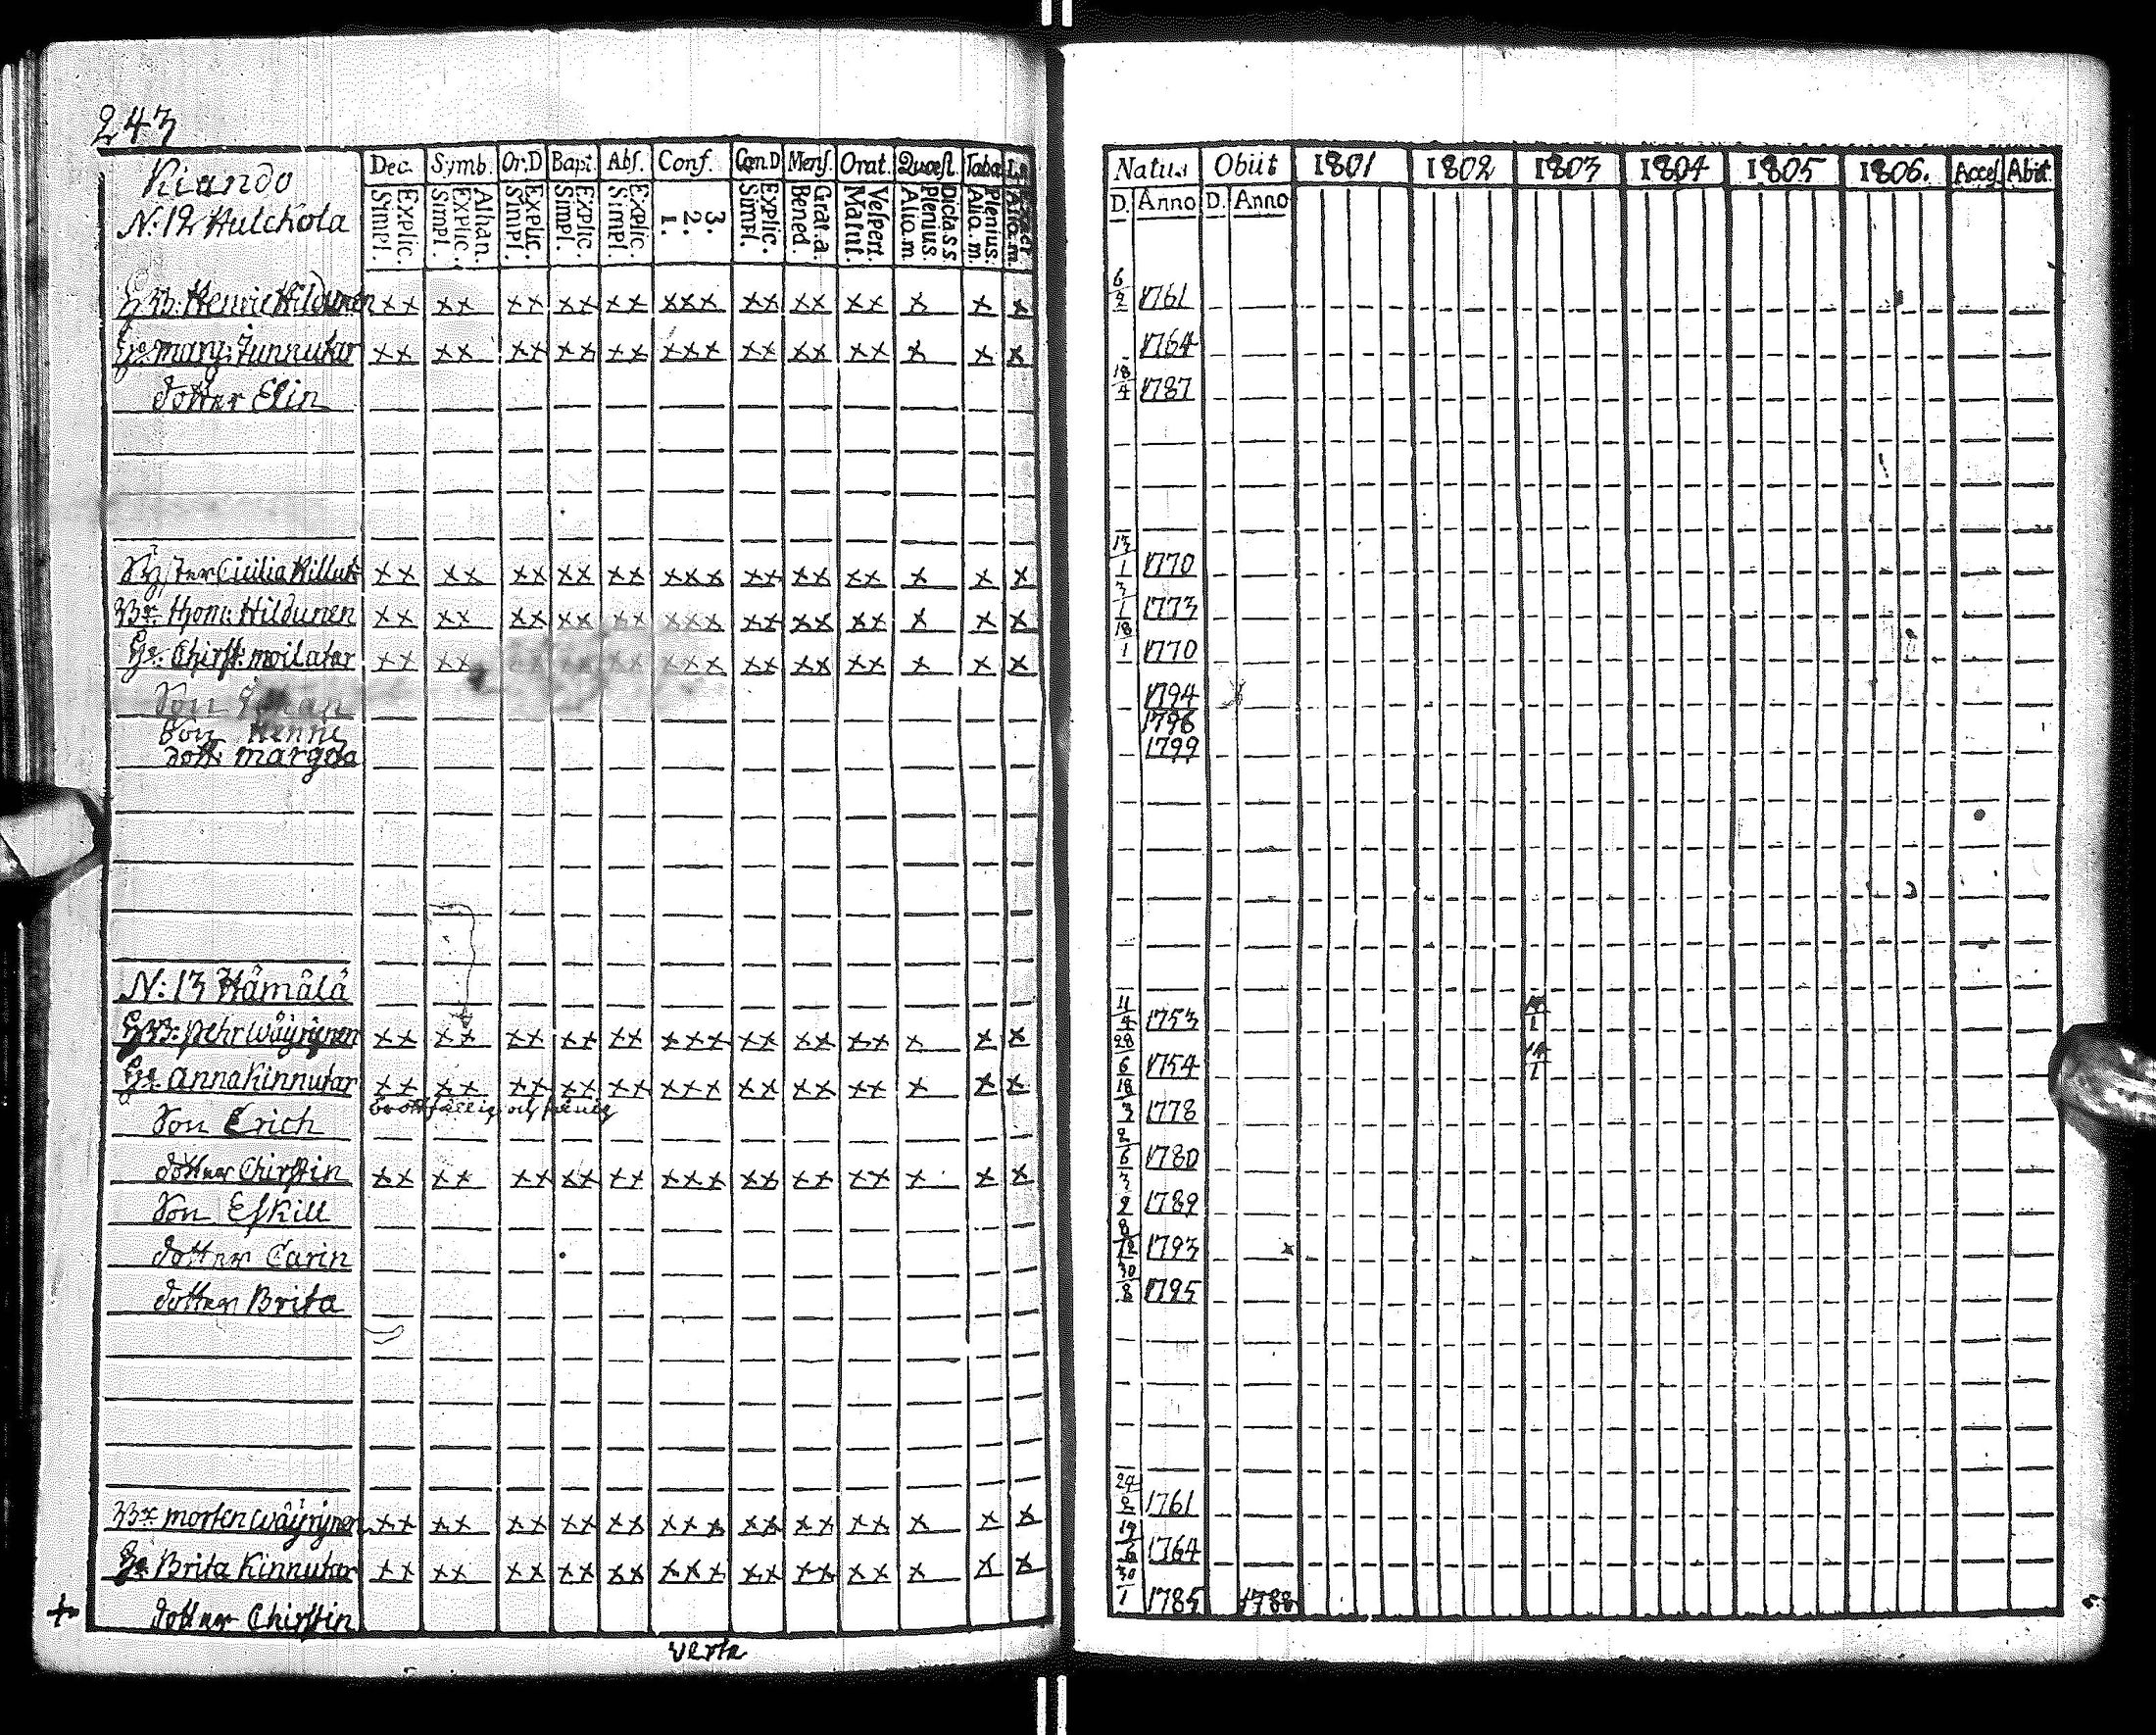 243
Kiando
N:12 Hulckola
Dec. Symb. Or.D Bapt. Abs. Conf. Cœn.D Mens. Orat. Quæst. Taba
Simpl. Explic. Simpl. Explic. Athan. Simpl. Explic. Simpl. Explic. Simpl. Explic. 1. 2. 3. Simpl. Explic. Bened. Grat.a. Matut. Vespert. Aliq.m Plenius. Dictass Aliq.m. Plenius. Aliq.m.
Natus Obiit 1801 1802 1803 1804 1805 1806. Access Abiit.
D. Anno D. Anno
HB: Henric Hildunen xx xx xx xx xx xxx xx xx xx x x x 6/2 1761
Hu. Marg: Junnutar xx xx xx xx xx xxx xx xx xx x x x 1764
Dotter Elin 18/4 1787
Syster Cicilia xx xx xx xx xx xxx xx xx xx x x x 13/1 1770
Br. Thom: Hildunen xx xx xx xx xx xxx xx xx xx x x x 3/1 1773
Hu. Chirst: Moilatar xx xx xx xx xx xxx xx xx xx x x x 18/1 1770
Son 1794
Son Henric 1796
Dott: Margeta 1799
N:13 Hämälä
HB: Pehr Wäyrynen xx xx xx xx xx xxx xx xx xx x x x 11/4 1753
Hu. Anna Kinnutar xx xx xx xx xx xxx xx xx xx x x x 28/6 1754
Son Erich brottfällig och 18/3 1778
Dotter Chirstin xx xx xx xx xx xxx xx xx xx x x x 2/6 1780
Son Eskill 3/2 1789
Dotter Carin 8/12 1793
Dotter Brita 30/8 1795
Br. Morten Wäyrynen xx xx xx xx xx xxx xx xx xx x x x 24/2 1761
Hu Brita Kinnutar xx xx xx xx xx xxx xx xx xx x x x 19/6 1764
+ Dotter Chirstin 30/1 1785 1788
Verte